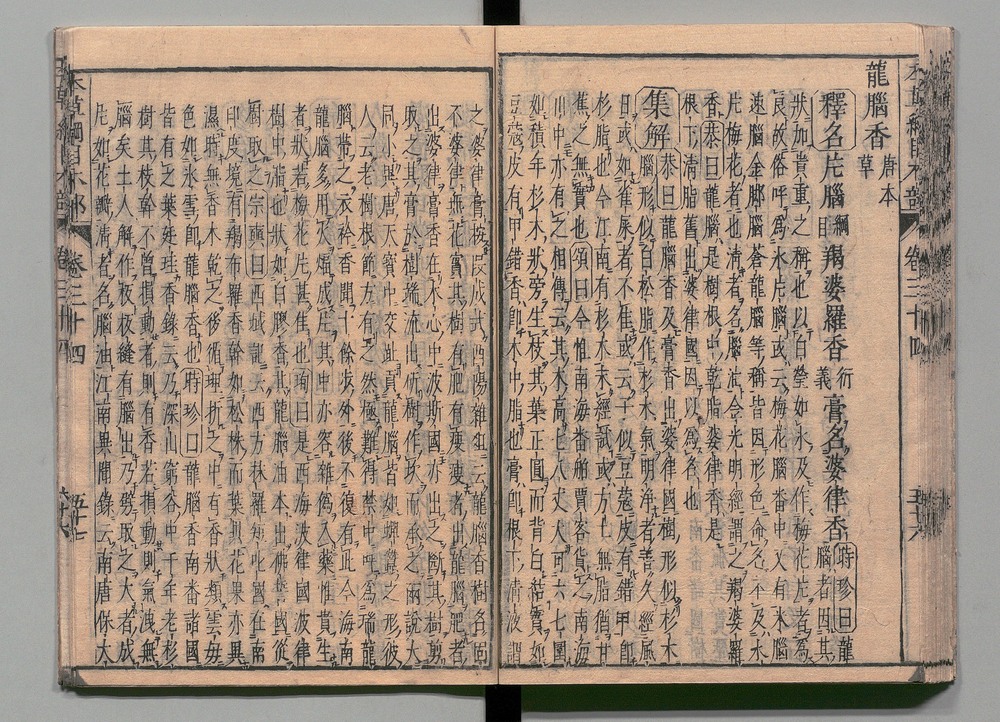 龍腦香 唐本草
釋名 片腦 綱目 羯婆羅香 衍義 膏名婆律香 時珍曰龍腦者因其
狀加貴重之稱也以白瑩如氷及作梅花片者爲
良故俗呼爲氷片腦或云梅花腦番中又有米腦
速腦金脚腦蒼龍腦等稱皆因形色命名不及氷
片梅花者也清者名腦油金光明經謂之羯婆羅
香 恭曰龍腦是樹根中乾脂婆律香是
根下清脂舊出婆律國因以爲名也
集解 恭曰龍腦香及膏香出婆律國樹形似杉木
腦形似白松脂作杉木氣明淨者善久經風
日或如雀屎者不佳或云子似豆蔻皮有錯甲卽
杉脂也今江南有杉木未經試或方土無脂猶甘
蕉之無實也 頌曰今惟南海番舶賈客貨之南海
山中亦有之相傳云其木高七八丈大可六七圍
如積年杉木狀旁生枝其葉正圓而背白結實如
豆蔻皮有甲錯香卽木中脂也膏卽根下清液謂
之婆律膏按段成式酉陽雜俎云龍腦香樹名固
不婆律無花實其樹有肥有瘦瘦者出龍腦肥者
出婆律膏香在木心中波斯國亦出之斷其樹剪
取之其膏於樹端流出斫樹作坎而承之兩說大
同小異唐天寶中交趾貢龍腦皆如蟬蠶之形彼
人云老樹根節方有之然極難得禁中呼爲瑞龍
腦帶之衣衿香聞十餘步外後不復有此今海南
龍腦多用火煏成片其中亦容雜偽入藥惟貴生
者狀若梅花片甚佳也 珣曰是西海波律國波律
樹中脂也狀如白膠香其龍腦油本出佛誓國從
樹取之 宗奭曰西域記云西方秣羅矩叱國在南
印度境有羯布羅香幹如松株而葉異花果亦異
濕時無香木乾之後循理折之中有香狀類雲母
色如氷雪卽龍腦香也 時珍曰龍腦香南番諸國
皆有之葉廷珪香錄云乃深山窮谷中千年老杉
樹其枝幹不曾損動者則有香若損動則氣洩無
腦矣土人解作板板縫有腦出乃劈取之大者成
片如花瓣清者名腦油江南異聞錄云南唐保大